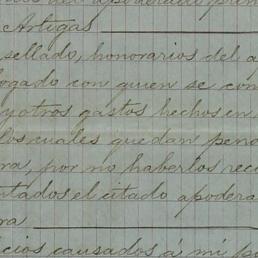 Artigas
sellado, honorarios del a
ogado con quien se con
y otros gastos hechos en
los cuales quedan pen
ra, por no haberlos reci
tados el citado apodera
ra
cios causados á mi p